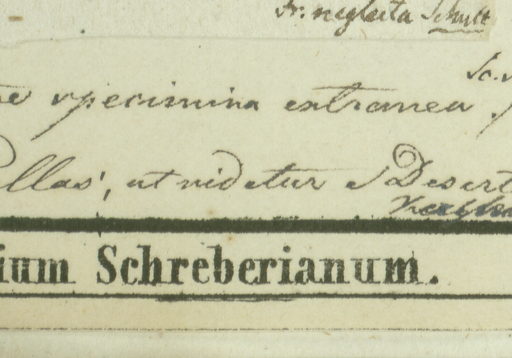 Tr. neglecta Schult
specimina extranea
ut videtur e Desert
ium Schreberianum.